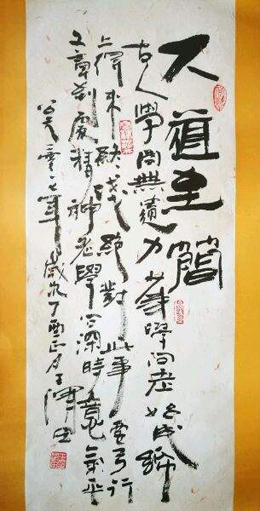 大道至簡
古人學問無遺力少學問老始成紙
上得来終淺絕對此事要躬行
文章到處精神老學问深時意氣平
公元二零一七年歲次丁酉正月